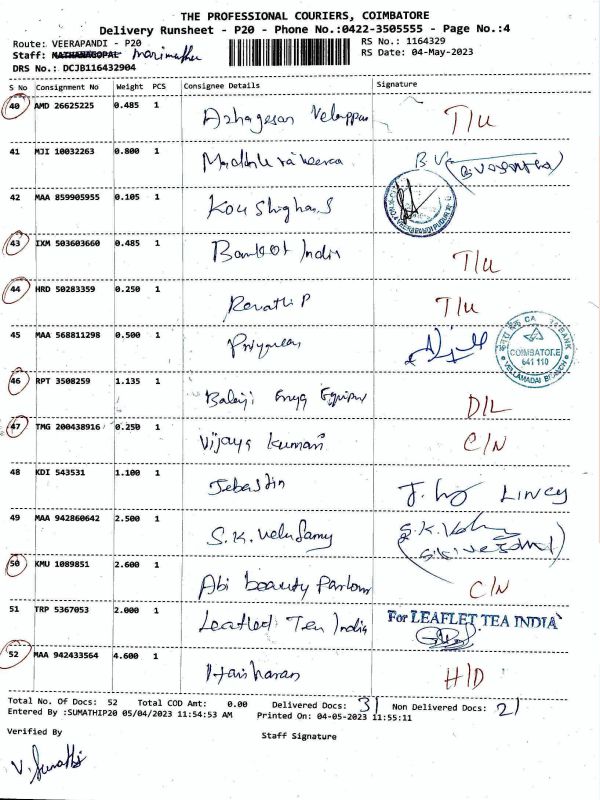 THE PROFESSIONAL COURIERS, COIMBATORE
Delivery Runsheet - P20 - Phone No.:0422-3505555 - Page No.:4
Route: VEERAPANDI - P20 RS No.: 1164329
Staff: MATHANAGOPAL Marimuthu RS Date: 04-May-2023
DRS No.: DCJB116432904
S No Consignment No Weight PCS Consignee Details Signature
40 AMD 26625225 0.485 1 Azhagesan Velappan T/U
41 MJI 10032263 0.800 1 B.V (B.VASANTHA)
42 MAA 859905955 0.105 1 Koushighan.S
43 IXM 503603660 0.485 1 Bankof India T/U
44 HRD 50283359 0.250 1 Revathi P T/U
45 MAA 568811298 0.500 1 Priya
COIMBATORE
641 110
VELLAMADAI BRANCH
46 RPT 3508259 1.135 1 Balaji Engg Equip D/L
47 TMG 200438916 0.250 1 Vijaya Kumari C/N
48 KDI 543531 1.100 1 Jebastin J. LINCY
49 MAA 942860642 2.500 1 S.K. Velusamy S.K.
50 KMU 1089851 2.600 1 Abi beauty Parlour C/N
51 TRP 5367053 2.000 1 Leaflet Tea India For LEAFLET TEA INDIA
52 MAA 942433564 4.600 1 Hariharan H/D
Total No. Of Docs: 52 Total COD Amt: 0.00 Delivered Docs: 31 Non Delivered Docs: 21
Entered By :SUMATHIP20 05/04/2023 11:54:53 AM Printed On: 04-05-2023 11:55:11
Verified By Staff Signature
V. Sumathi